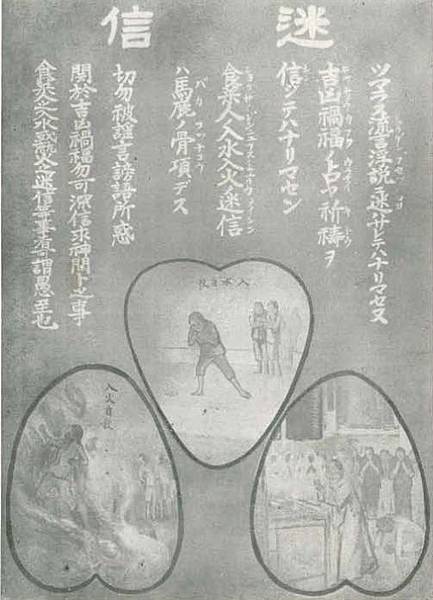 迷信
ツマラヌ流言浮説ニ迷サレテハナリマセヌ
吉凶禍福ノ占ヤ祈禱ヲ
信ジテハナリマセン
食菜人入水入火ノ迷信
ハ馬鹿ノ骨項デス
切勿被謠言謗語所惑
關於吉凶禍福勿可深信求神問卜之事
食菜之入水或入火之迷信等事可謂愚至也
入水自殺
入火自殺